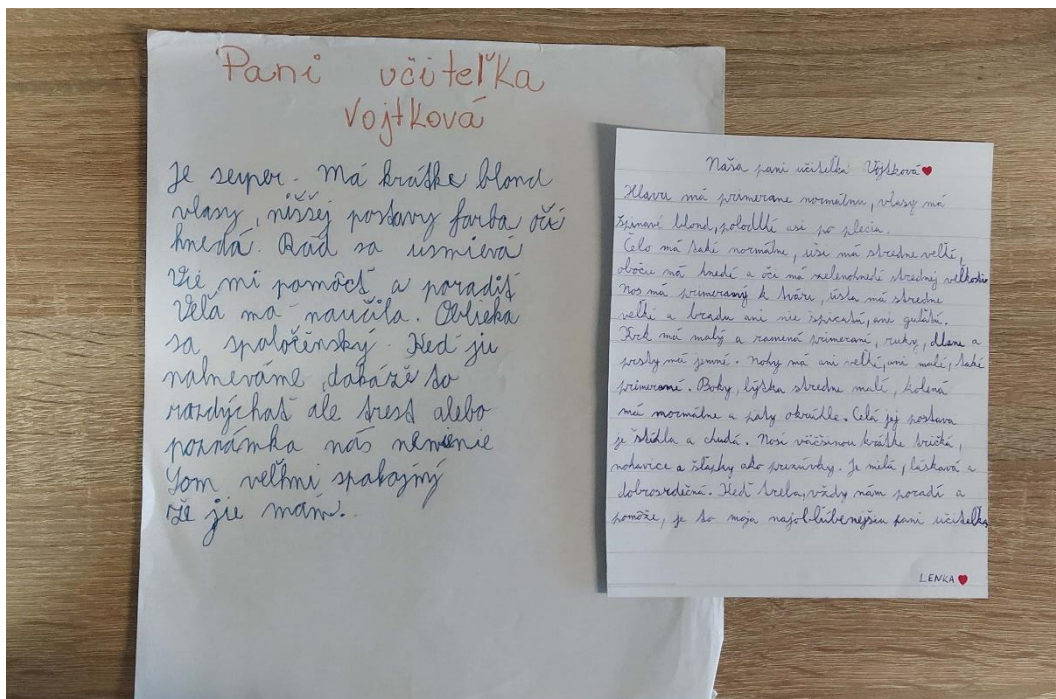 Pani učiteľka
Vojtková
Je seuper. Má krátke blond
vlasy, nižšej postavy farba očí
hnedá. Rád sa usmieva
Vie mi pomôcť a poradiť
Veľa ma naučila. Oblieka
sa spoločenský. Keď ju
nalneváme, dokáže to
rozdýchať ale trest alebo
poznámka nás nemenie
Som veľmi spokojný
že jie mám.
Naša pani učiteľka Vojtková
Hlavu má primerane normálnu, vlasy má
špinavé blond, polodlhé asi po plecia.
Čelo má také normálne, uši má stredne veľké,
obočie má hnedé a oči má zelenohnedé strednej veľkosti.
Nos má primeraný k tváre, ústa má stredne
veľké a bradu ani nie špicatú, ani guľatú.
Krk má malý a ramená primerané, ruky, dlane a
prsty má jemné. Nohy má ani veľké, ani malé, také
primerané. Boky, lýtka stredne malé, kolená
má normálne a päty okrúhle. Celá jej postava
je štíhla a chudá. Nosí väčšinou krátke tričká,
nohavice a šľapky ako prezúvky. Je milá, láskavá a
dobrosrdečná. Keď treba, vždy nám poradí a
pomôže, je to moja najobľúbenejšia pani učiteľka
LENKA